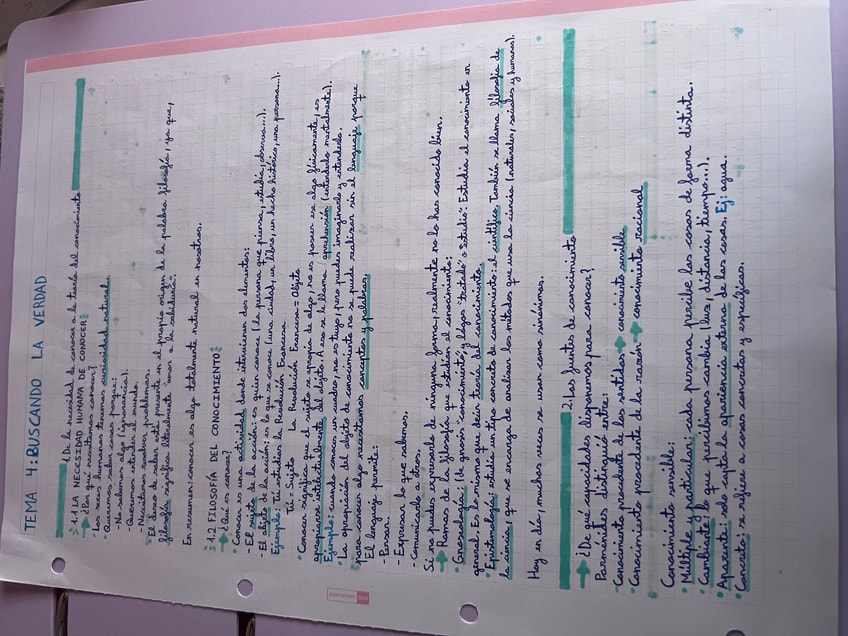 TEMA 4: BUSCANDO LA VERDAD
1. De la necesidad de conocer a la teoría del conocimiento
1.1 LA NECESIDAD HUMANA DE CONOCER:
→ ¿Por qué necesitamos conocer?
• Los seres humanos tenemos curiosidad natural.
• Queremos saber cosas porque:
- No sabemos algo (ignorancia).
- Queremos entender el mundo.
- Necesitamos resolver problemas.
• El deseo de saber está presente en el propio origen de la palabra filosofía, ya que,
filosofía significa literalmente "amor a la sabiduría".
En resumen: conocer es algo totalmente natural en nosotros.
1.2 FILOSOFÍA DEL CONOCIMIENTO:
→ ¿Qué es conocer?
• Conocer es una actividad donde intervienen dos elementos:
- El sujeto de la acción: es quien conoce (la persona que piensa, estudia, observa...).
- El objeto de la acción: es lo que se conoce (una ciudad, un libro, un hecho histórico, una persona...).
Ejemplo: Tú estudias la Revolución Francesa.
Tú = Sujeto La Revolución Francesa = Objeto
• Conocer significa que el sujeto se apropia de algo, no es poseer ese algo físicamente, es
apropiarse intelectualmente del objeto. A eso se le llama aprehensión (entenderlo mentalmente).
Ejemplo: cuando conoces un cuadro, no es tuyo, pero puedes imaginarlo y entenderlo.
• La apropiación del objeto de conocimiento no se puede realizar sin el lenguaje porque
para conocer algo necesitamos conceptos y palabras.
El lenguaje permite:
- Pensar.
- Expresar lo que sabemos.
- Comunicarlo a otros.
Si no puedes expresarlo de ninguna forma, realmente no lo has conocido bien.
→ Ramas de la filosofía que estudian el conocimiento:
• Gnoseología: (de gnosis "conocimiento", y lógos "tratado" o "estudio". Estudia el conocimiento en
general. Es lo mismo que decir teoría del conocimiento.
• Epistemología: estudia un tipo concreto de conocimiento: el científico. También se llama filosofía de
la ciencia, que se encarga de analizar los métodos que usa la ciencia (naturales, sociales y humanas).
Hoy en día, muchas veces se usan como sinónimos.
2. Las fuentes de conocimiento
→ ¿De qué capacidades disponemos para conocer?
Parménides distinguió entre:
- Conocimiento procedente de los sentidos → conocimiento sensible
- Conocimiento procedente de la razón → conocimiento racional
Conocimiento sensible:
• Múltiple y particular: cada persona percibe las cosas de forma distinta.
• Cambiante: lo que percibimos cambia (luz, distancia, tiempo...).
• Aparente: solo capta la apariencia externa de las cosas. Ej: agua.
• Concreto: se refiere a cosas concretas y específicas.